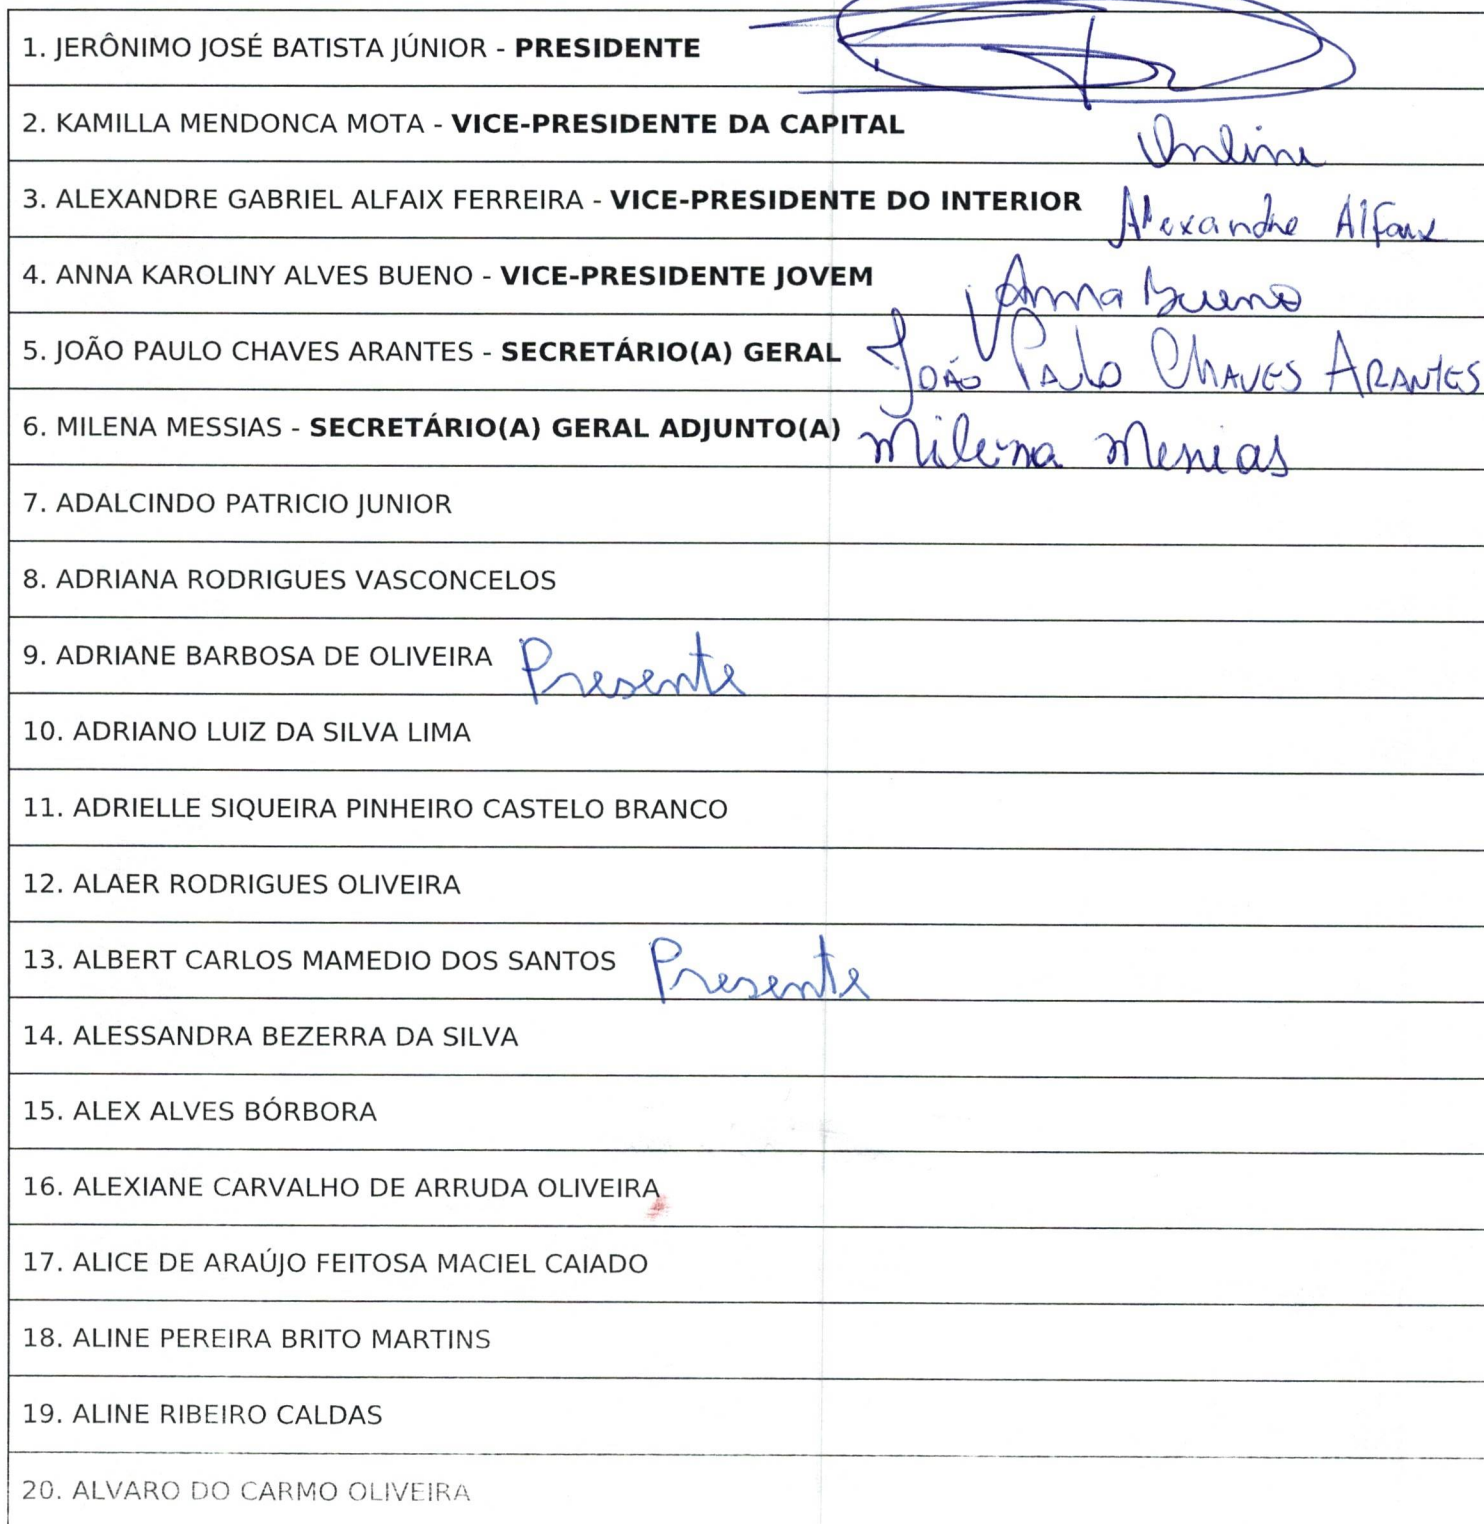 1. JERÔNIMO JOSÉ BATISTA JÚNIOR - PRESIDENTE
2. KAMILLA MENDONCA MOTA - VICE-PRESIDENTE DA CAPITAL Online
3. ALEXANDRE GABRIEL ALFAIX FERREIRA - VICE-PRESIDENTE DO INTERIOR Alexandre Alfaix
4. ANNA KAROLINY ALVES BUENO - VICE-PRESIDENTE JOVEM Anna Bueno
5. JOÃO PAULO CHAVES ARANTES - SECRETÁRIO(A) GERAL JOÃO PAULO CHAVES ARANTES
6. MILENA MESSIAS - SECRETÁRIO(A) GERAL ADJUNTO(A) Milena Messias
7. ADALCINDO PATRICIO JUNIOR
8. ADRIANA RODRIGUES VASCONCELOS
9. ADRIANE BARBOSA DE OLIVEIRA Presente
10. ADRIANO LUIZ DA SILVA LIMA
11. ADRIELLE SIQUEIRA PINHEIRO CASTELO BRANCO
12. ALAER RODRIGUES OLIVEIRA
13. ALBERT CARLOS MAMEDIO DOS SANTOS Presente
14. ALESSANDRA BEZERRA DA SILVA
15. ALEX ALVES BÓRBORA
16. ALEXIANE CARVALHO DE ARRUDA OLIVEIRA
17. ALICE DE ARAÚJO FEITOSA MACIEL CAIADO
18. ALINE PEREIRA BRITO MARTINS
19. ALINE RIBEIRO CALDAS
20. ALVARO DO CARMO OLIVEIRA